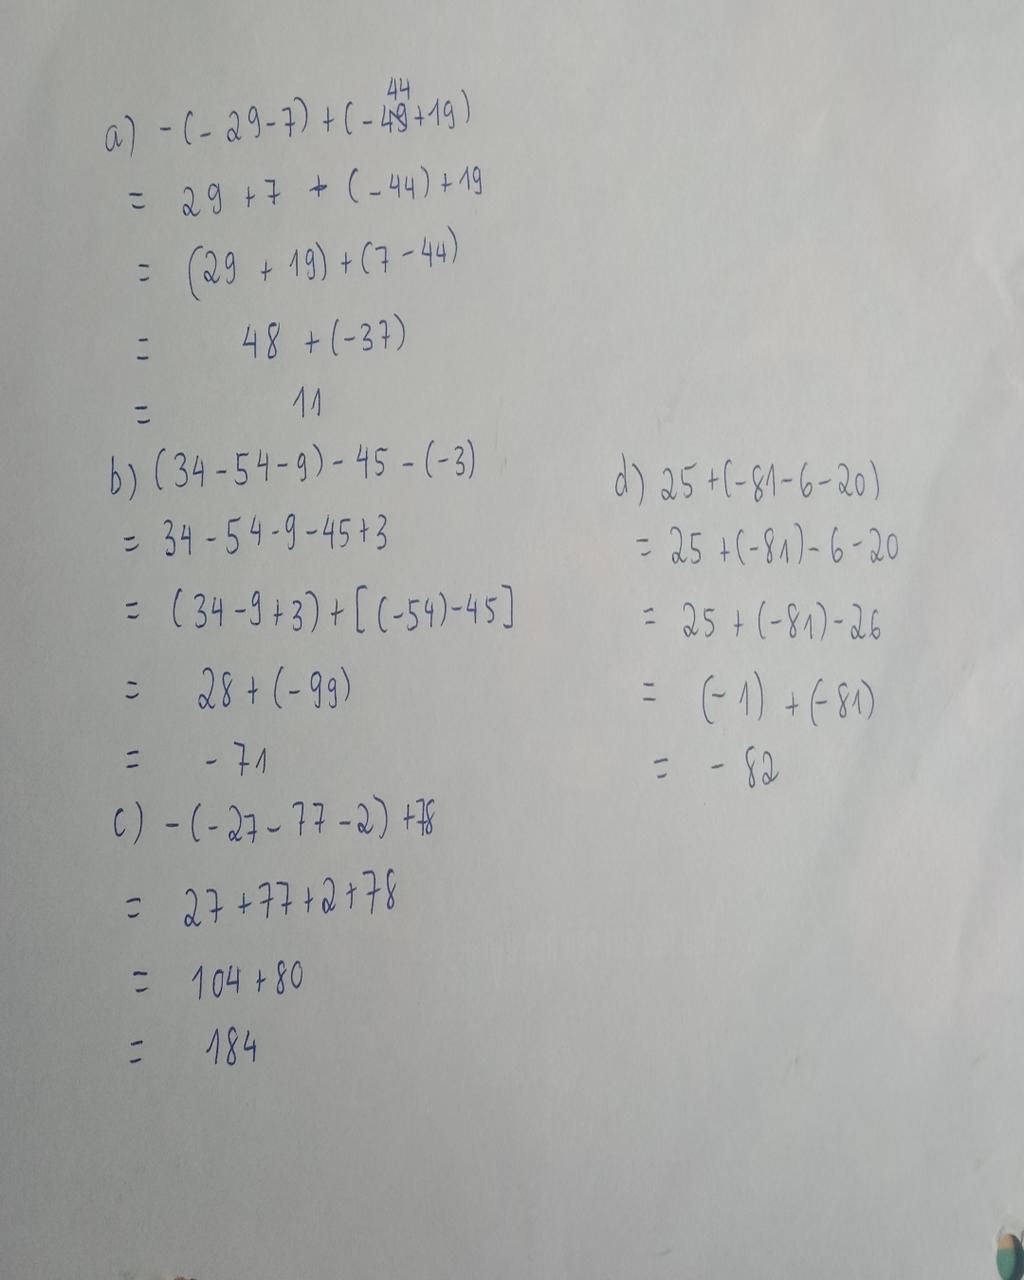 44
a) -(-29-7)+(-49+19)
= 29+7 + (-44)+19
= (29 + 19)+(7-44)
= 48 +(-37)
= 11
b) (34-54-9)-45-(-3)
= 34-54-9-45+3
= (34-9+3)+[(-54)-45]
= 28+(-99)
= -71
c) -(-27-77-2)+78
= 27+77+2+78
= 104+80
= 184
d) 25+(-81-6-20)
= 25+(-81)-6-20
= 25+(-81)-26
= (-1)+(-81)
= -82